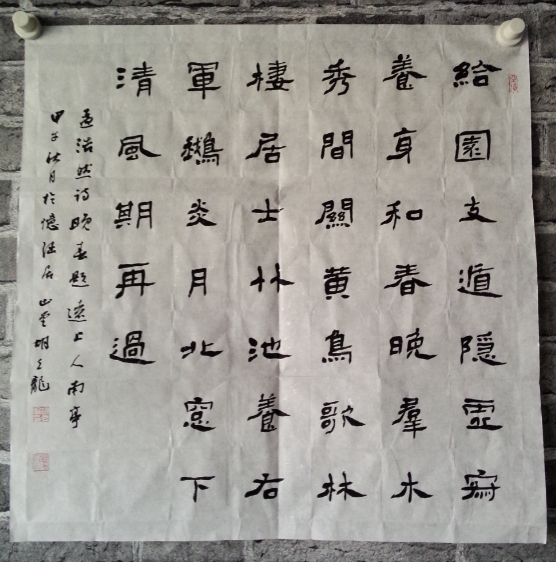 給園支遁隐虛寂
養身和春晚羣木
秀間關黄鳥歌林
棲居士竹池養右
軍鵝炎月北窓下
清風期再過
孟浩然诗晚春題遠上人南亭
甲子秋月於憶居山堂胡龍